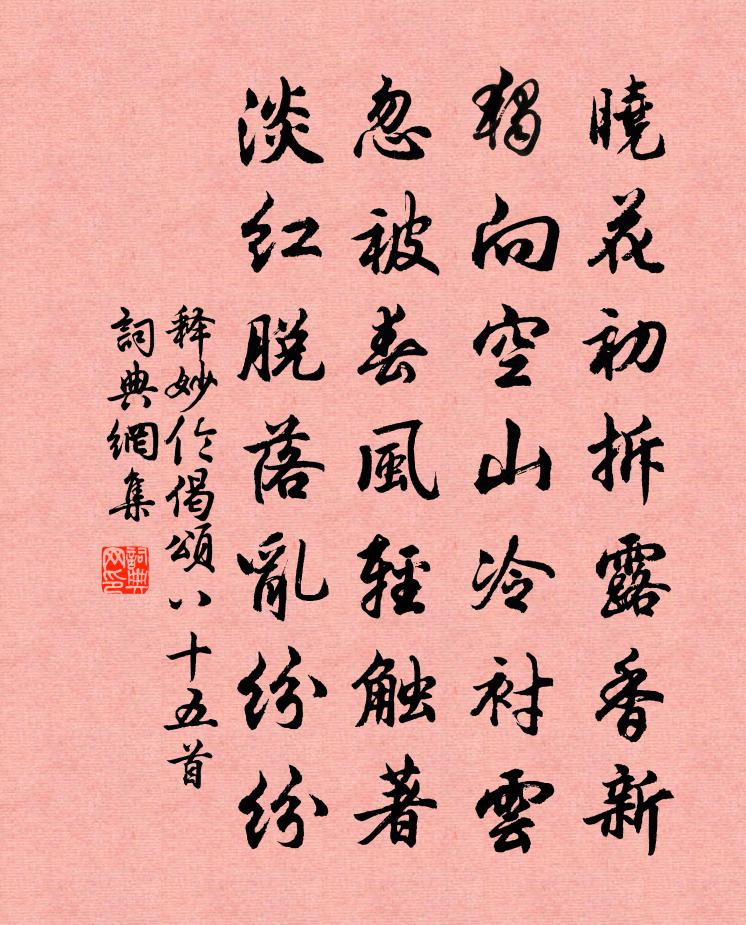 曉花初拆露香新
獨向空山冷衬雲
忽被春風輕触著
淡红脱落亂纷纷
释妙伦偈頌八十五首
詞典網集
詞典网印